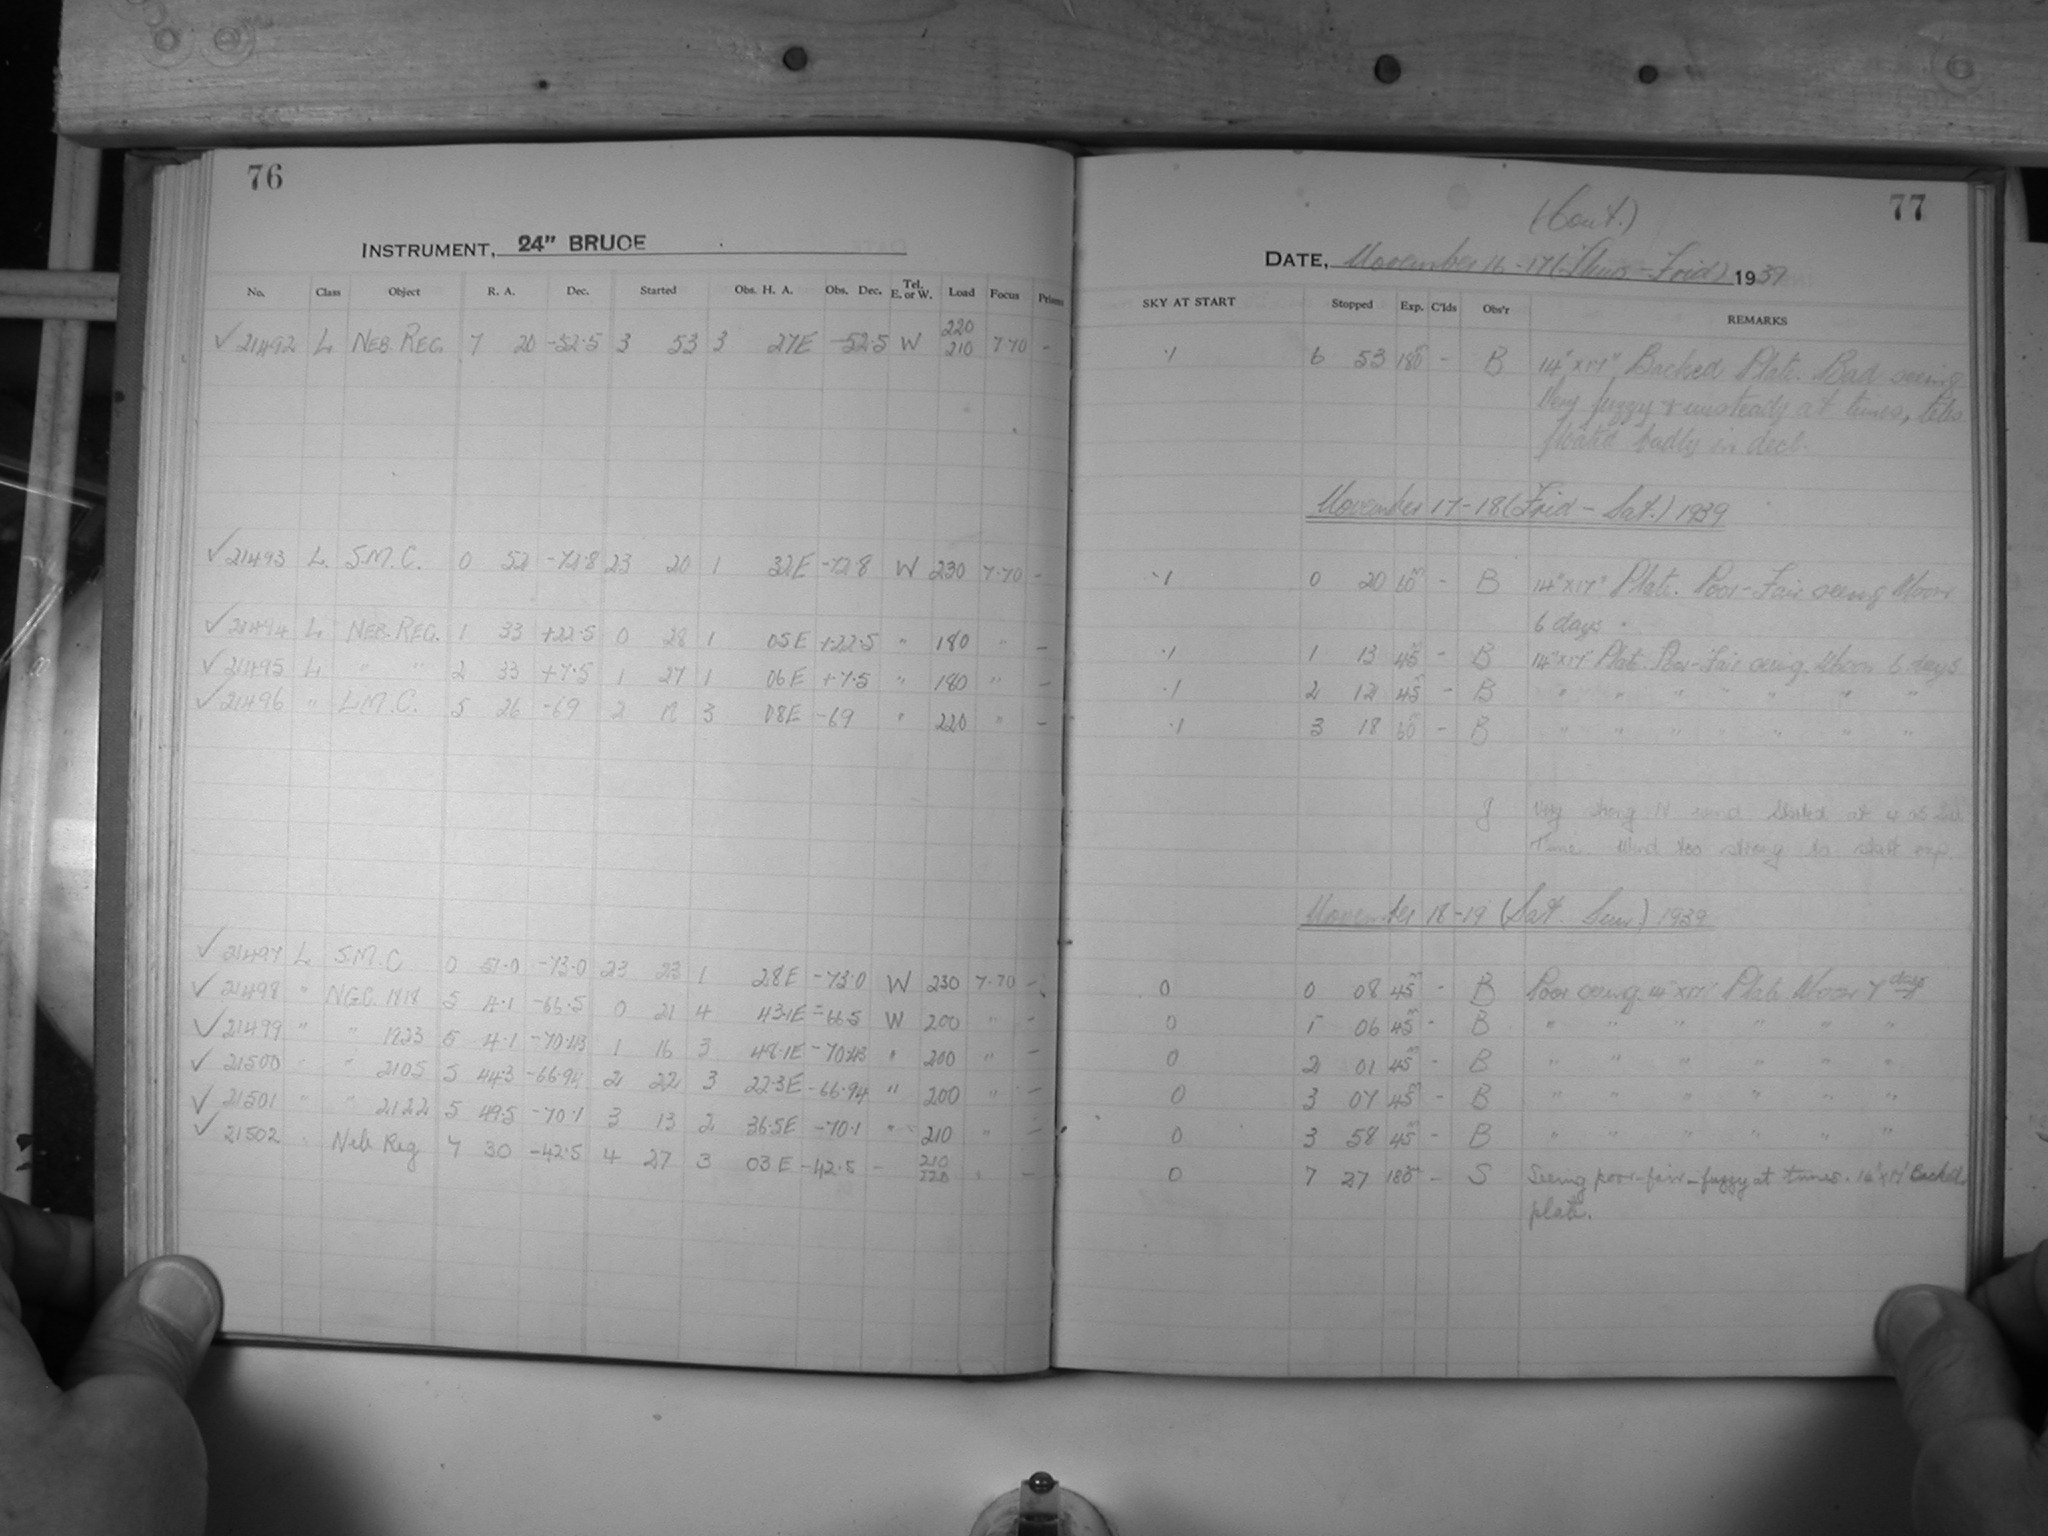 76
INSTRUMENT, 24" BRUCE
No. Class Object R. A. Dec. Started Obs. H. A. Obs. Dec. Tel. E. or W. Load Focus Prisms
✓ 21492 L NEB. REG. 7 20 -52.5 3 53 3 27E -52.5 W 220 210 7.70 -
✓ 21493 L. S.M.C. 0 52 -72.8 23 20 1 32E -72.8 W 230 7.70 -
✓ 21494 L NEB. REG. 1 33 +22.5 0 28 1 05E +22.5 " 180 " -
✓ 21495 L " " 2 33 +7.5 1 27 1 06E +7.5 " 180 " -
✓ 21496 " L.M.C. 5 26 -69 2 18 3 08E -69 " 220 " -
✓ 21497 L S.M.C 0 51.0 -73.0 23 23 1 28E -73.0 W 230 7.70 -
✓ 21498 " NGC. 1818 5 4.1 -66.5 0 21 4 43.1E -66.5 W 200 " -
✓ 21499 " " 1923 5 4.1 -70.43 1 16 3 48.1E -70.43 " 200 " -
✓ 21500 " " 2105 5 44.3 -66.94 2 22 3 22.3E -66.94 " 200 " -
✓ 21501 " " 2122 5 49.5 -70.1 3 13 2 36.5E -70.1 " 210 " -
✓ 21502 " Neb Reg 7 30 -42.5 4 27 3 03 E -42.5 - 210 220 " -
77
(Cont.)
DATE, November 16-17 (Thurs-Frid) 1939
SKY AT START Stopped Exp. C'lds Obs'r REMARKS
.1 6 53 180m - B 14"x17" Backed Plate. Bad seeing
Very fuzzy & unsteady at times,
floated badly in decl.
November 17-18 (Frid - Sat.) 1939
.1 0 20 60m - B 14"x17" Plate. Poor-Fair seeing Moon
6 days
.1 1 13 45m - B 14"x17" Plate. Poor-Fair seeing. Moon 6 days
.1 2 12 45m - B " " " " " " "
.1 3 18 60m - B " " " " " " "
J Very strong N wind started at 4
Time. Wind too strong to start exp.
November 18-19 (Sat. Sun.) 1939
0 0 08 45m - B Poor seeing 14"x17" Plate Moon 7 days
0 1 06 45m - B " " " " " "
0 2 01 45m - B " " " " " "
0 3 07 45m - B " " " " " "
0 3 58 45m - B " " " " " "
0 7 27 180m - S Seeing poor-fair-fuzzy at times. 14"x17" Backed
plate.